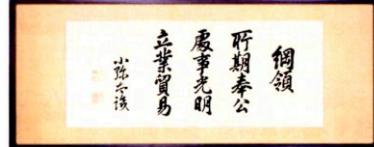 綱領
所期奉公
處事光明
立業貿易
小弥太議